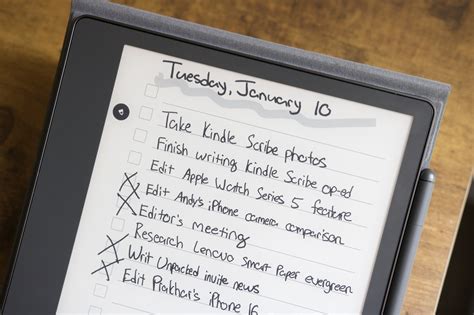 Tuesday, January 10
Take Kindle Scribe photos
Finish writing Kindle Scribe op-ed
Edit Apple Watch Series 5 feature
Edit Andy's iPhone camera comparison
Editor's meeting
Research Lenovo Smart Paper evergreen
Writ Unpacked invite news
Edit Prakhar's iPhone 16